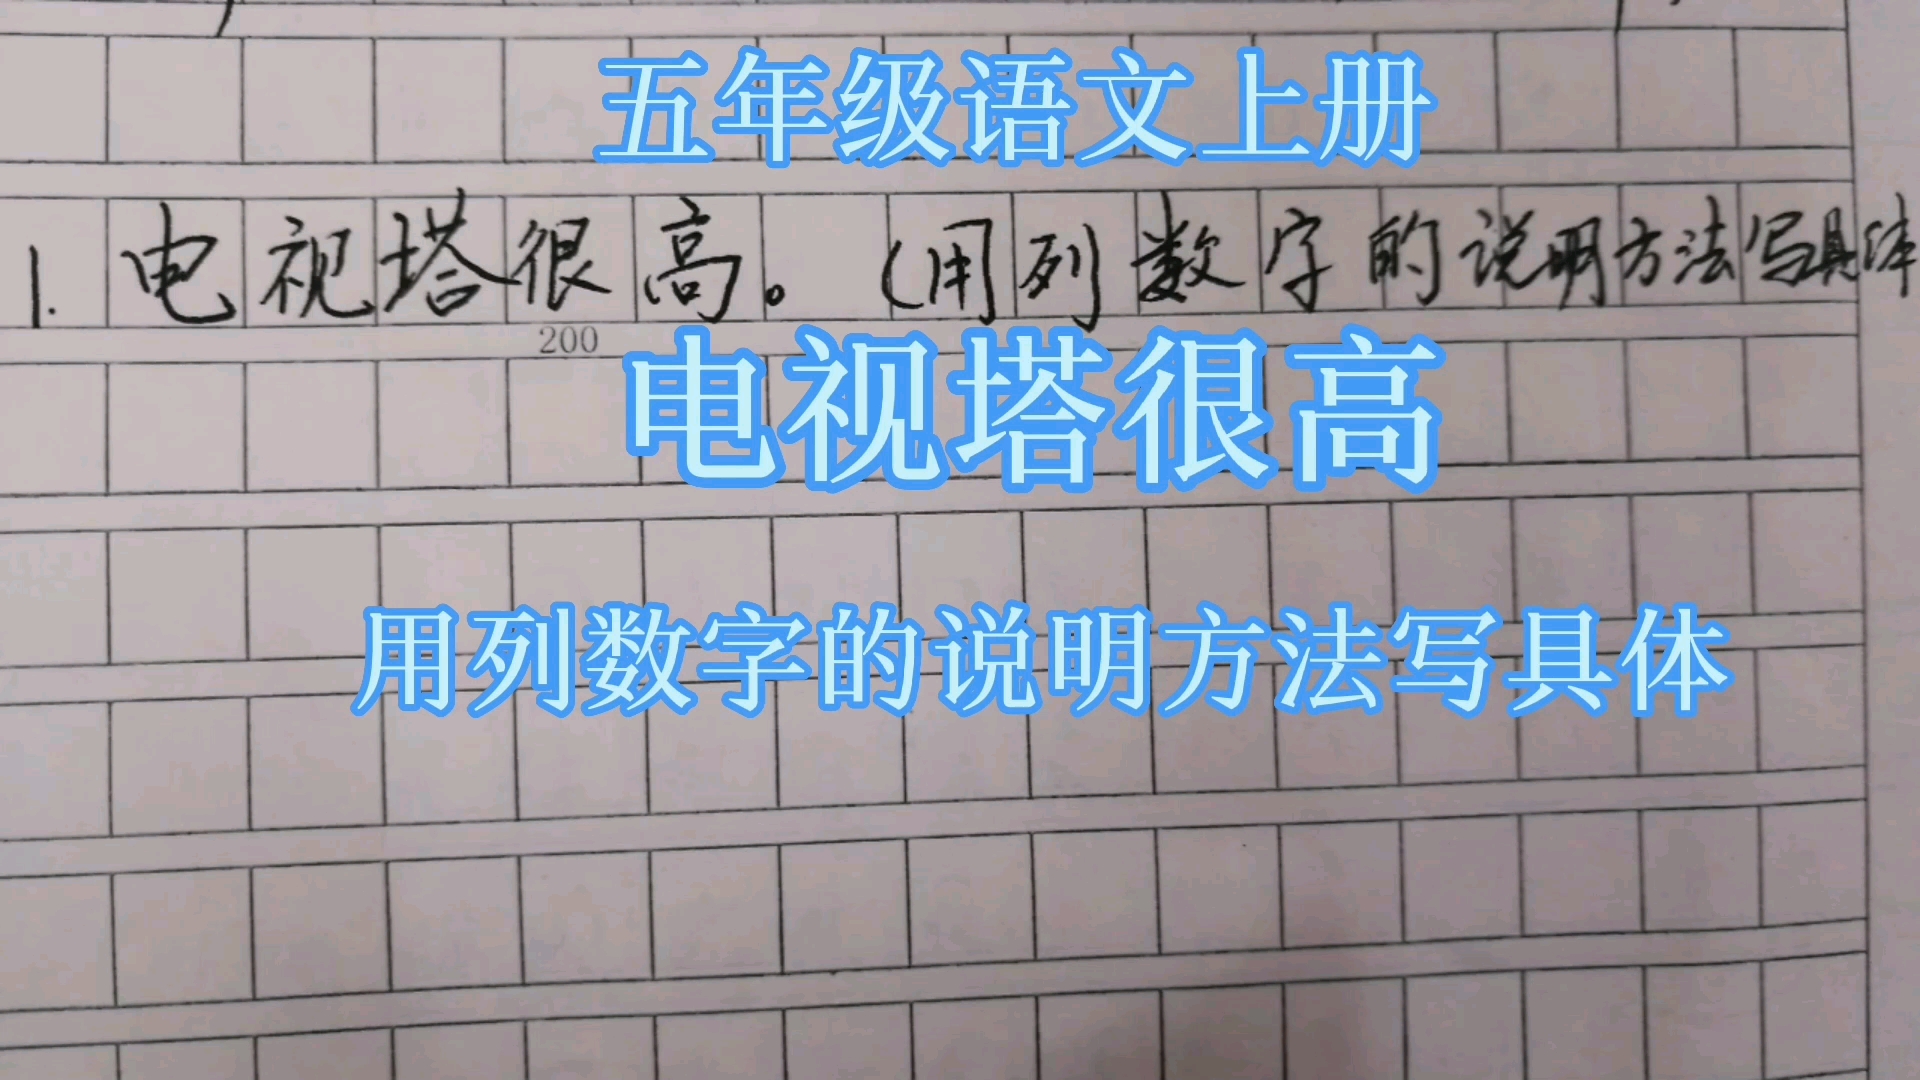 五年级语文上册
1. 电视塔很高。(用列数字的说明方法写具体
200
电视塔很高
用列数字的说明方法写具体